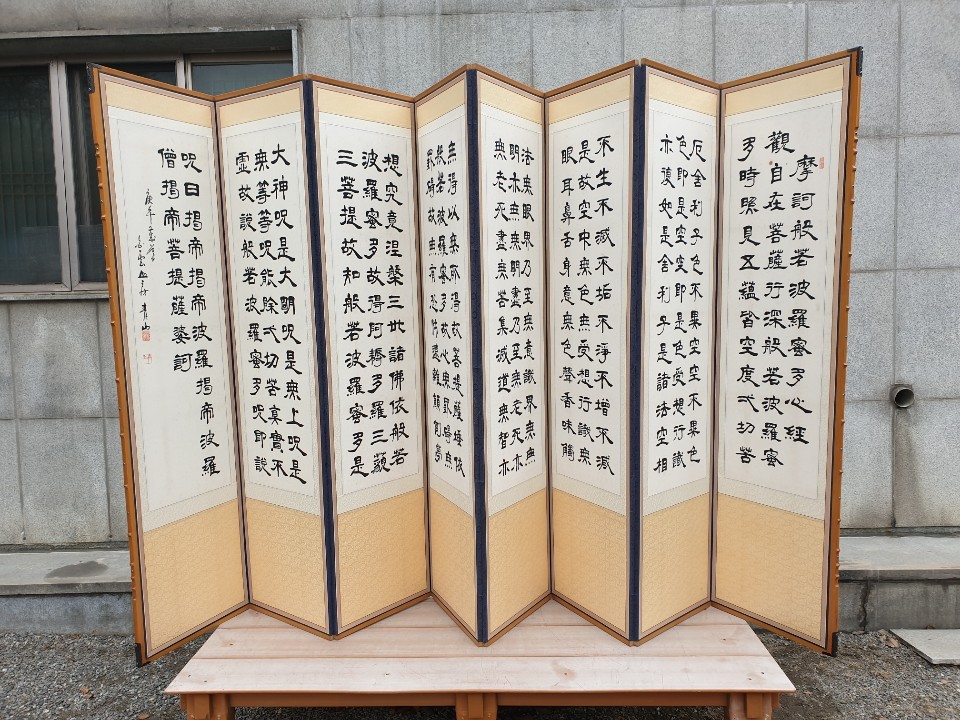 摩訶般若波羅蜜多心經
觀自在菩薩行深般若波羅蜜
多時照見五蘊皆空度弌切苦
厄舍利子色不異空空不異色
色即是空空即是色受想行識
亦復如是舍利子是諸法空相
不生不滅不垢不淨不增不減
是故空中無色無受想行識無
眼耳鼻舌身意無色聲香味觸
法無眼界乃至無意識界無無
明亦無無明盡乃至無老死亦
無老死盡無苦集滅道無智亦
無得以無所得故菩提薩埵依
般若波羅蜜多故心無罣碍無
罣碍故無有恐怖遠離顛倒夢
想究竟涅槃三世諸佛依般若
波羅蜜多故得阿耨多羅三藐
三菩提故知般若波羅蜜多是
大神呪是大明呪是無上呪是
無等等呪能除弌切苦真實不
虛故說般若波羅蜜多呪即說
呪曰揭帝揭帝波羅揭帝波羅
僧揭帝菩提薩婆訶
庚午
青山